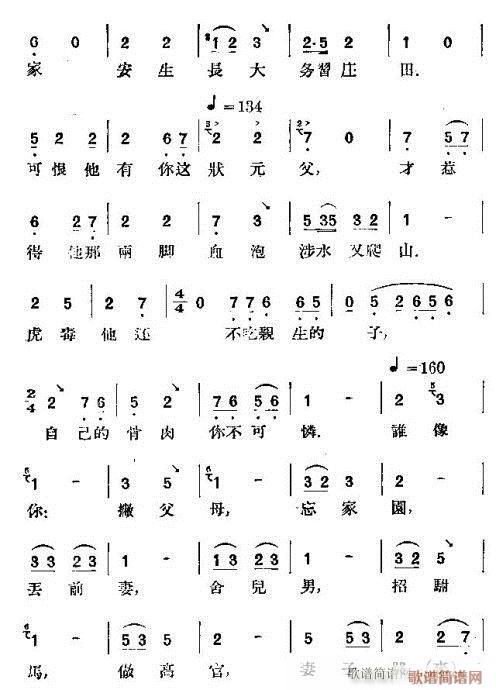 6 0 | 2 2 | 1 2 3 | 2·5 2 | 1 0 |
家 安 生 長 大 务習 庄 田.
♩=134
5 2 2 | 2 6 7 | 2 2 | 7 0 | 7 5 7 |
可恨他 有你这 狀 元 父, 才 惹
6 2 7 | 2 2 | 7 3 | 5 35 3 2 | 1 - |
得 他那 兩 脚 血 泡 涉水 又爬 山.
2 5 | 2 7 | 4/4 0 7 76 6 5 | 0 5 2 656 |
虎 毒 他 还 不吃親 生的 子,
♩=160
2/4 2 76 | 5 2 | 76 56 | 1 - | 2 3 |
自己的 骨 肉 你不可 憐. 誰 像
1 - | 3 5 | 1 - | 32 3 | 1 - |
你: 撇 父 母, 忘 家 園,
33 23 | 1 - | 33 23 | 1 - | 32 5 |
丢 前 妻, 舍 兒 男, 招 駙
1 - | 2 53 | 1 - | 2 2 | 2 27 |
馬, 做 高 官, 妻 子
歌谱简谱网
www.jianpu.cn